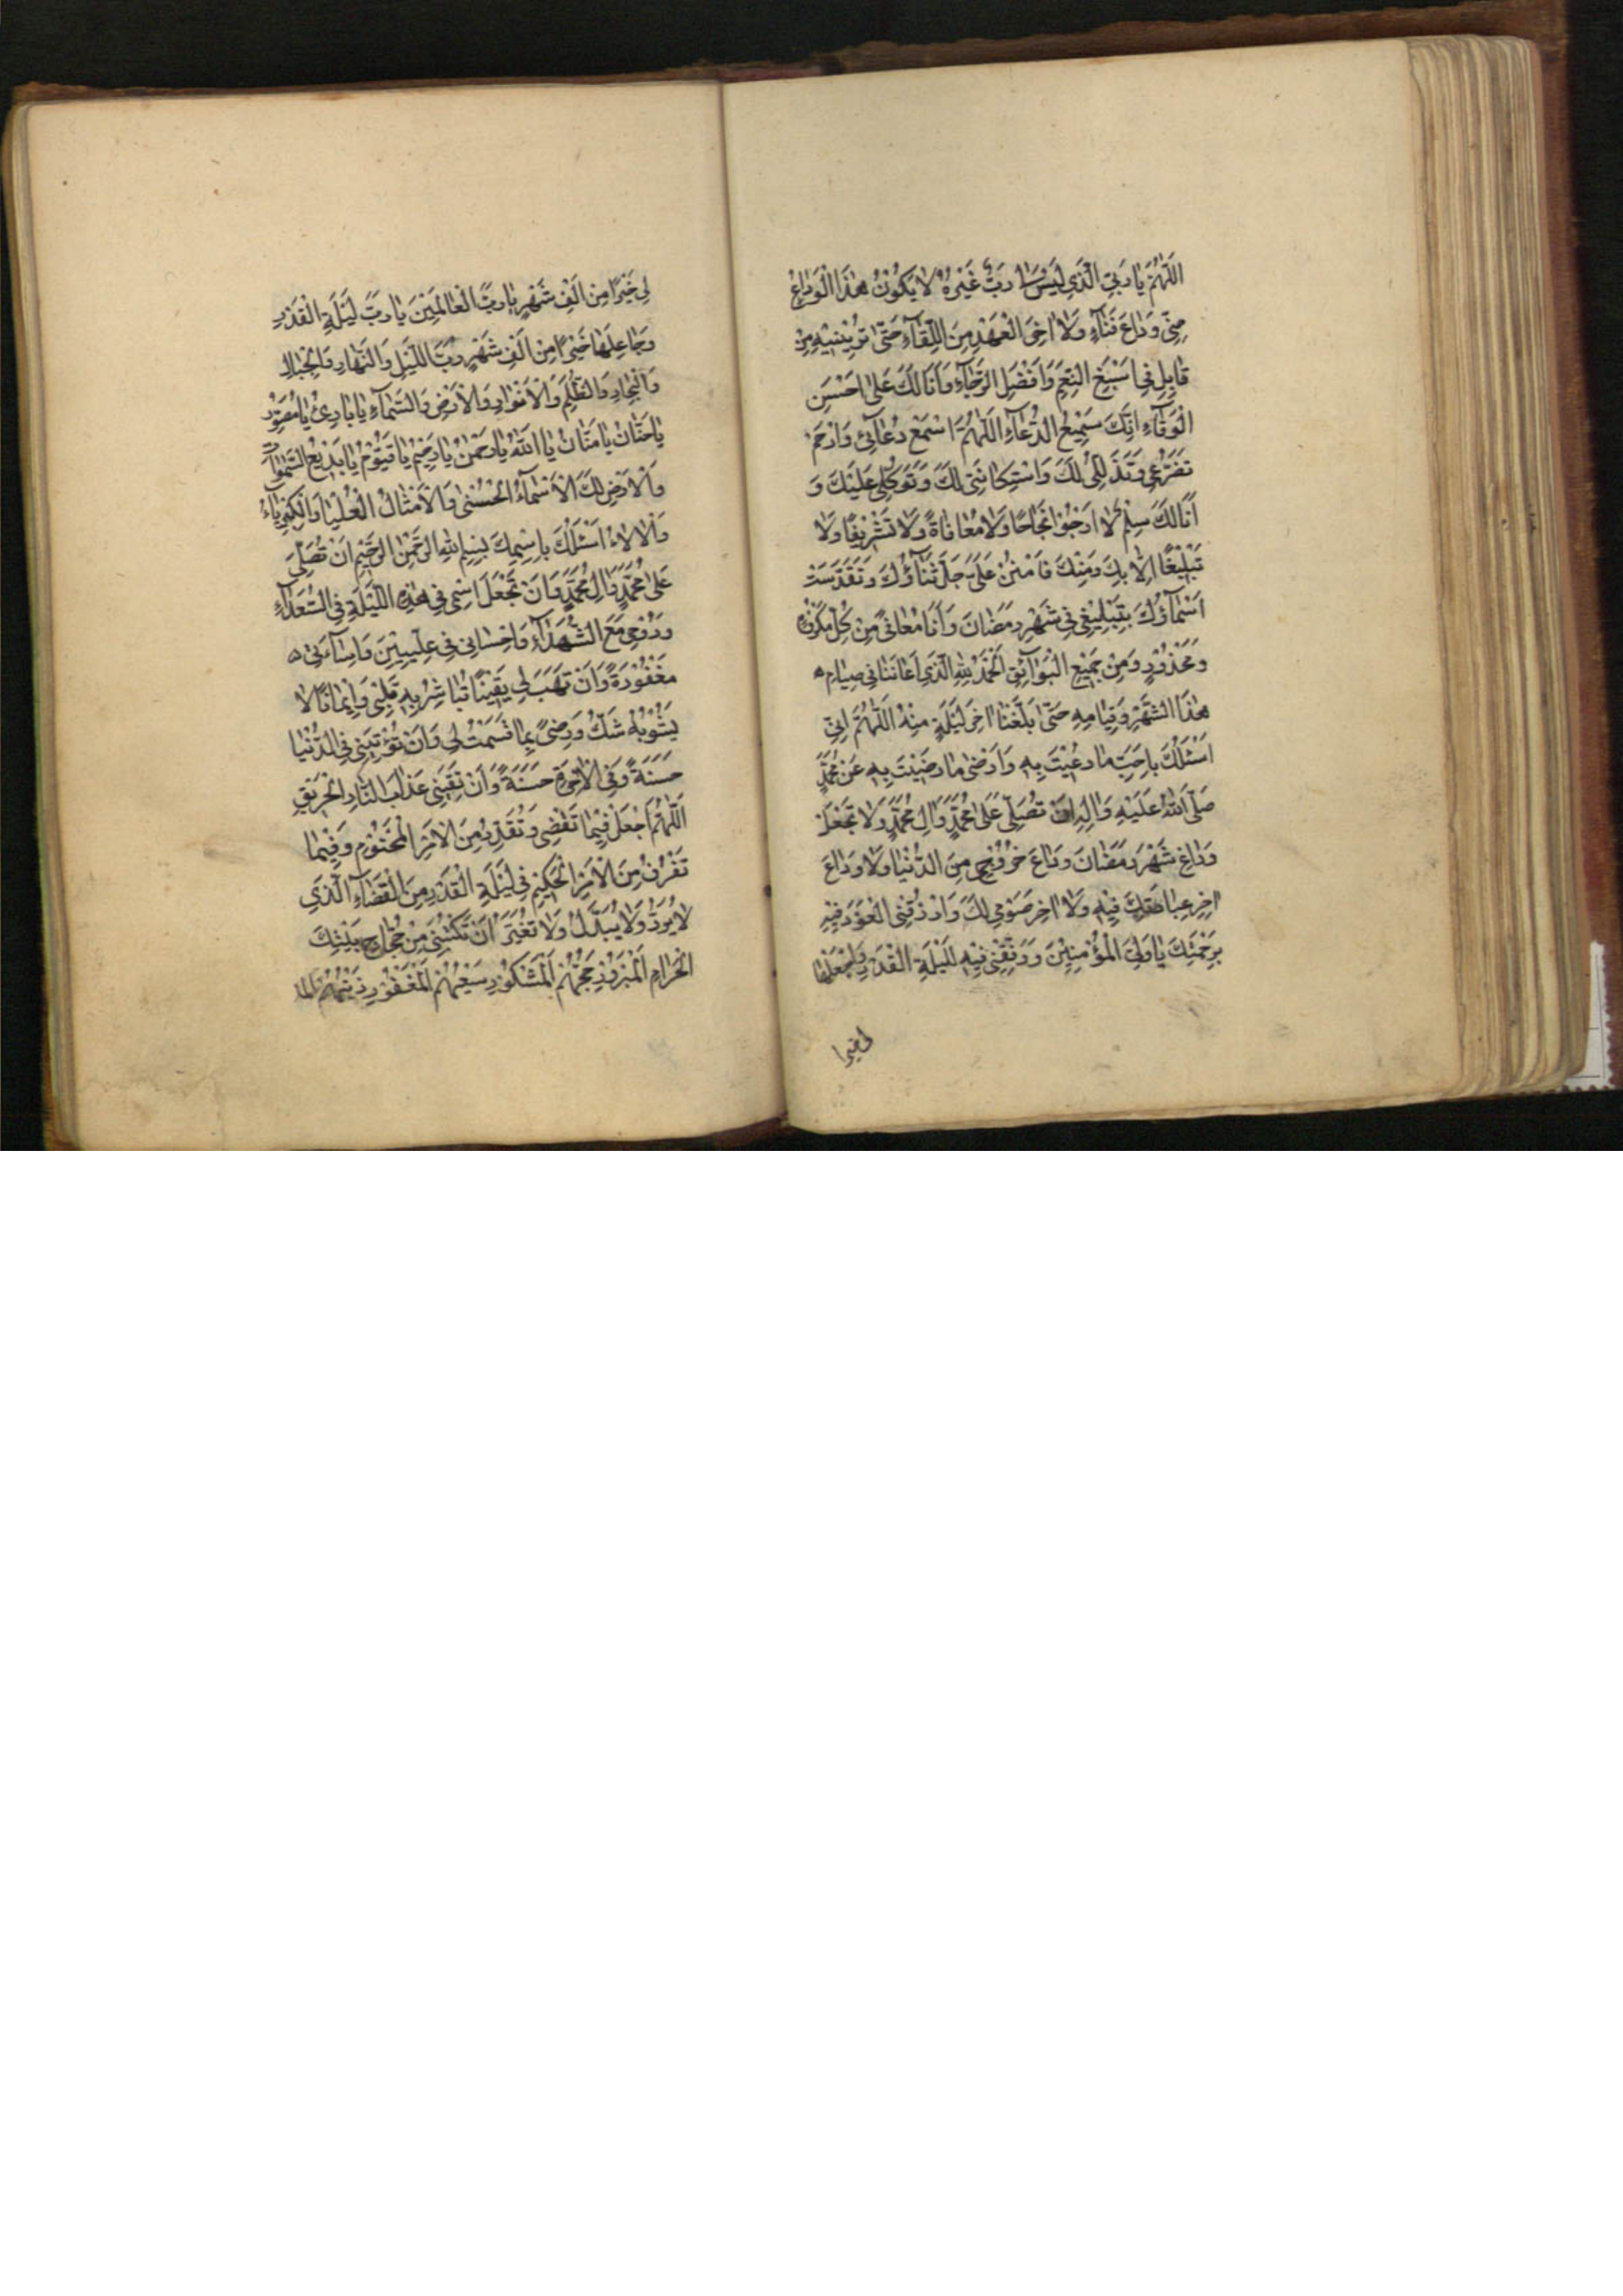 اَللّٰهُمَّ يٰا رَبِّيَ الَّذَي لَيْسَ لِي رَبٌّ غَيْرُهُ لاٰ يَكُونُ هٰذَا الْوَدٰاعُ
مِنّي وَدٰاعَ فَنٰآءٍ وَلاٰ اٰخِرَ الْعَهْدِ مِنَ اللِّقٰآءِ حَتّٰى تُرِيَنيهِ مِنْ
قٰابِلٍ في اَسْبَغِ النِّعَمِ وَاَفْضَلِ الرَّجٰآءِ وَاَنَا لَكَ عَلىٰ اَحْسَنِ
الْوَفٰآءِ اِنَّكَ سَمِيعُ الدُّعٰآءِ اَللّٰهُمَّ اسْمَعْ دُعٰائي وَارْحَمْ
تَضَرُّعي وَتَذَلُّلي لَكَ وَاسْتِكٰانَتي لَكَ وَتَوَكُّلي عَلَيْكَ وَ
اَنَا لَكَ سِلْمٌ لاٰ اَرْجُوا نَجٰاحًا وَلاٰ مُعٰافٰاةً وَلاٰ تَشْريفًا وَلاٰ
تَبْليغًا اِلاّٰ بِكَ وَمِنْكَ فَامْنُنْ عَلَيَّ جَلَّ ثَنٰآؤُكَ وَتَقَدَّسَتْ
اَسْمٰآؤُكَ بِتَبْليغي شَهْرَ رَمَضٰانَ وَاَنَا مُعٰافىً مِنْ كُلِّ مَكْرُوهٍ
وَمَحْذُورٍ وَمِنْ جَميعِ الْبَوٰآئِقِ اَلْحَمْدُ لِلّٰهِ الَّذي اَعٰانَنٰا في صِيٰامِ
هٰذَا الشَّهْرِ وَقِيٰامِهِ حَتّٰى بَلَّغَنٰا اٰخِرَ لَيْلَةٍ مِنْهُ اَللّٰهُمَّ اِنّي
اَسْئَلُكَ بِاَحَبِّ مٰا دُعيتَ بِهِ وَاَرْضىٰ مٰا رَضيتَ بِهِ عَنْ مُحَمَّدٍ
صَلَّى اللّٰهُ عَلَيْهِ وَاٰلِهِ اَنْ تُصَلِّيَ عَلىٰ مُحَمَّدٍ وَاٰلِ مُحَمَّدٍ وَلاٰ تَجْعَلْ
وَدٰاعَ شَهْرِ رَمَضٰانَ وَدٰاعَ خُرُوجي مِنَ الدُّنْيٰا وَلاٰ وَدٰاعَ
اٰخِرِ عِبٰادَتِكَ فيهِ وَلاٰ اٰخِرَ صَوْمي لَكَ وَارْزُقْنِي الْعَوْدَ فيهِ
بِرَحْمَتِكَ يٰا وَلِيَّ الْمُؤْمِنينَ وَوَفِّقْني فيهِ لِلَيْلَةِ الْقَدْرِ وَاجْعَلْهٰا
لي خيرا
لي خَيْرًا مِنْ اَلْفِ شَهْرٍ يٰا رَبَّ الْعٰالَمينَ يٰا رَبَّ لَيْلَةِ الْقَدْرِ
وَجٰاعِلَهٰا خَيْرًا مِنْ اَلْفِ شَهْرٍ رَبَّ اللَّيْلِ وَالنَّهٰارِ وَالْجِبٰالِ
وَالْبِحٰارِ وَالظُّلَمِ وَالْاَنْوٰارِ وَالْاَرْضِ وَالسَّمٰآءِ يٰا بٰارِئُ يٰا مُصَوِّرُ
يٰا حَنّٰانُ يٰا مَنّٰانُ يٰا اَللّٰهُ يٰا رَحْمٰنُ يٰا رَحيمُ يٰا قَيُّومُ يٰا بَديعَ السَّمٰوٰاتِ
وَالْاَرْضِ لَكَ الْاَسْمٰآءُ الْحُسْنىٰ وَالْاَمْثٰالُ الْعُلْيٰا وَالْكِبْرِيٰآءُ
وَالْاٰلاٰءُ اَسْئَلُكَ بِاسْمِكَ بِسْمِ اللّٰهِ الرَّحْمٰنِ الرَّحيمِ اَنْ تُصَلِّيَ
عَلىٰ مُحَمَّدٍ وَاٰلِ مُحَمَّدٍ وَاَنْ تَجْعَلَ اسْمي في هٰذِهِ اللَّيْلَةِ فِي السُّعَدٰآءِ
وَرُوحي مَعَ الشُّهَدٰآءِ وَاِحْسٰاني في عِلِّيّينَ وَاِسٰآءَتي
مَغْفُورَةً وَاَنْ تَهَبَ لي يَقينًا تُبٰاشِرُ بِهِ قَلْبي وَايمٰانًا لاٰ
يَشُوبُهُ شَكٌّ وَرِضىً بِمٰا قَسَمْتَ لي وَاَنْ تُؤْتِيَني فِي الدُّنْيٰا
حَسَنَةً وَفِي الْاٰخِرَةِ حَسَنَةً وَاَنْ تَقِيَني عَذٰابَ النّٰارِ الْحَريقِ
اَللّٰهُمَّ اجْعَلْ فيمٰا تَقْضي وَتُقَدِّرُ مِنَ الْاَمْرِ الْمَحْتُومِ وَفيمٰا
تَفْرُقُ مِنَ الْاَمْرِ الْحَكيمِ في لَيْلَةِ الْقَدْرِ مِنَ الْقَضٰآءِ الَّذي
لاٰ يُرَدُّ وَلاٰ يُبَدَّلُ وَلاٰ تُغَيَّرُ اَنْ تَكْتُبَني مِنْ حُجّٰاجِ بَيْتِكَ
الْحَرٰامِ الْمَبْرُورِ حَجُّهُمْ الْمَشْكُورِ سَعْيُهُمْ الْمَغْفُورِ ذَنْبُهُمْ